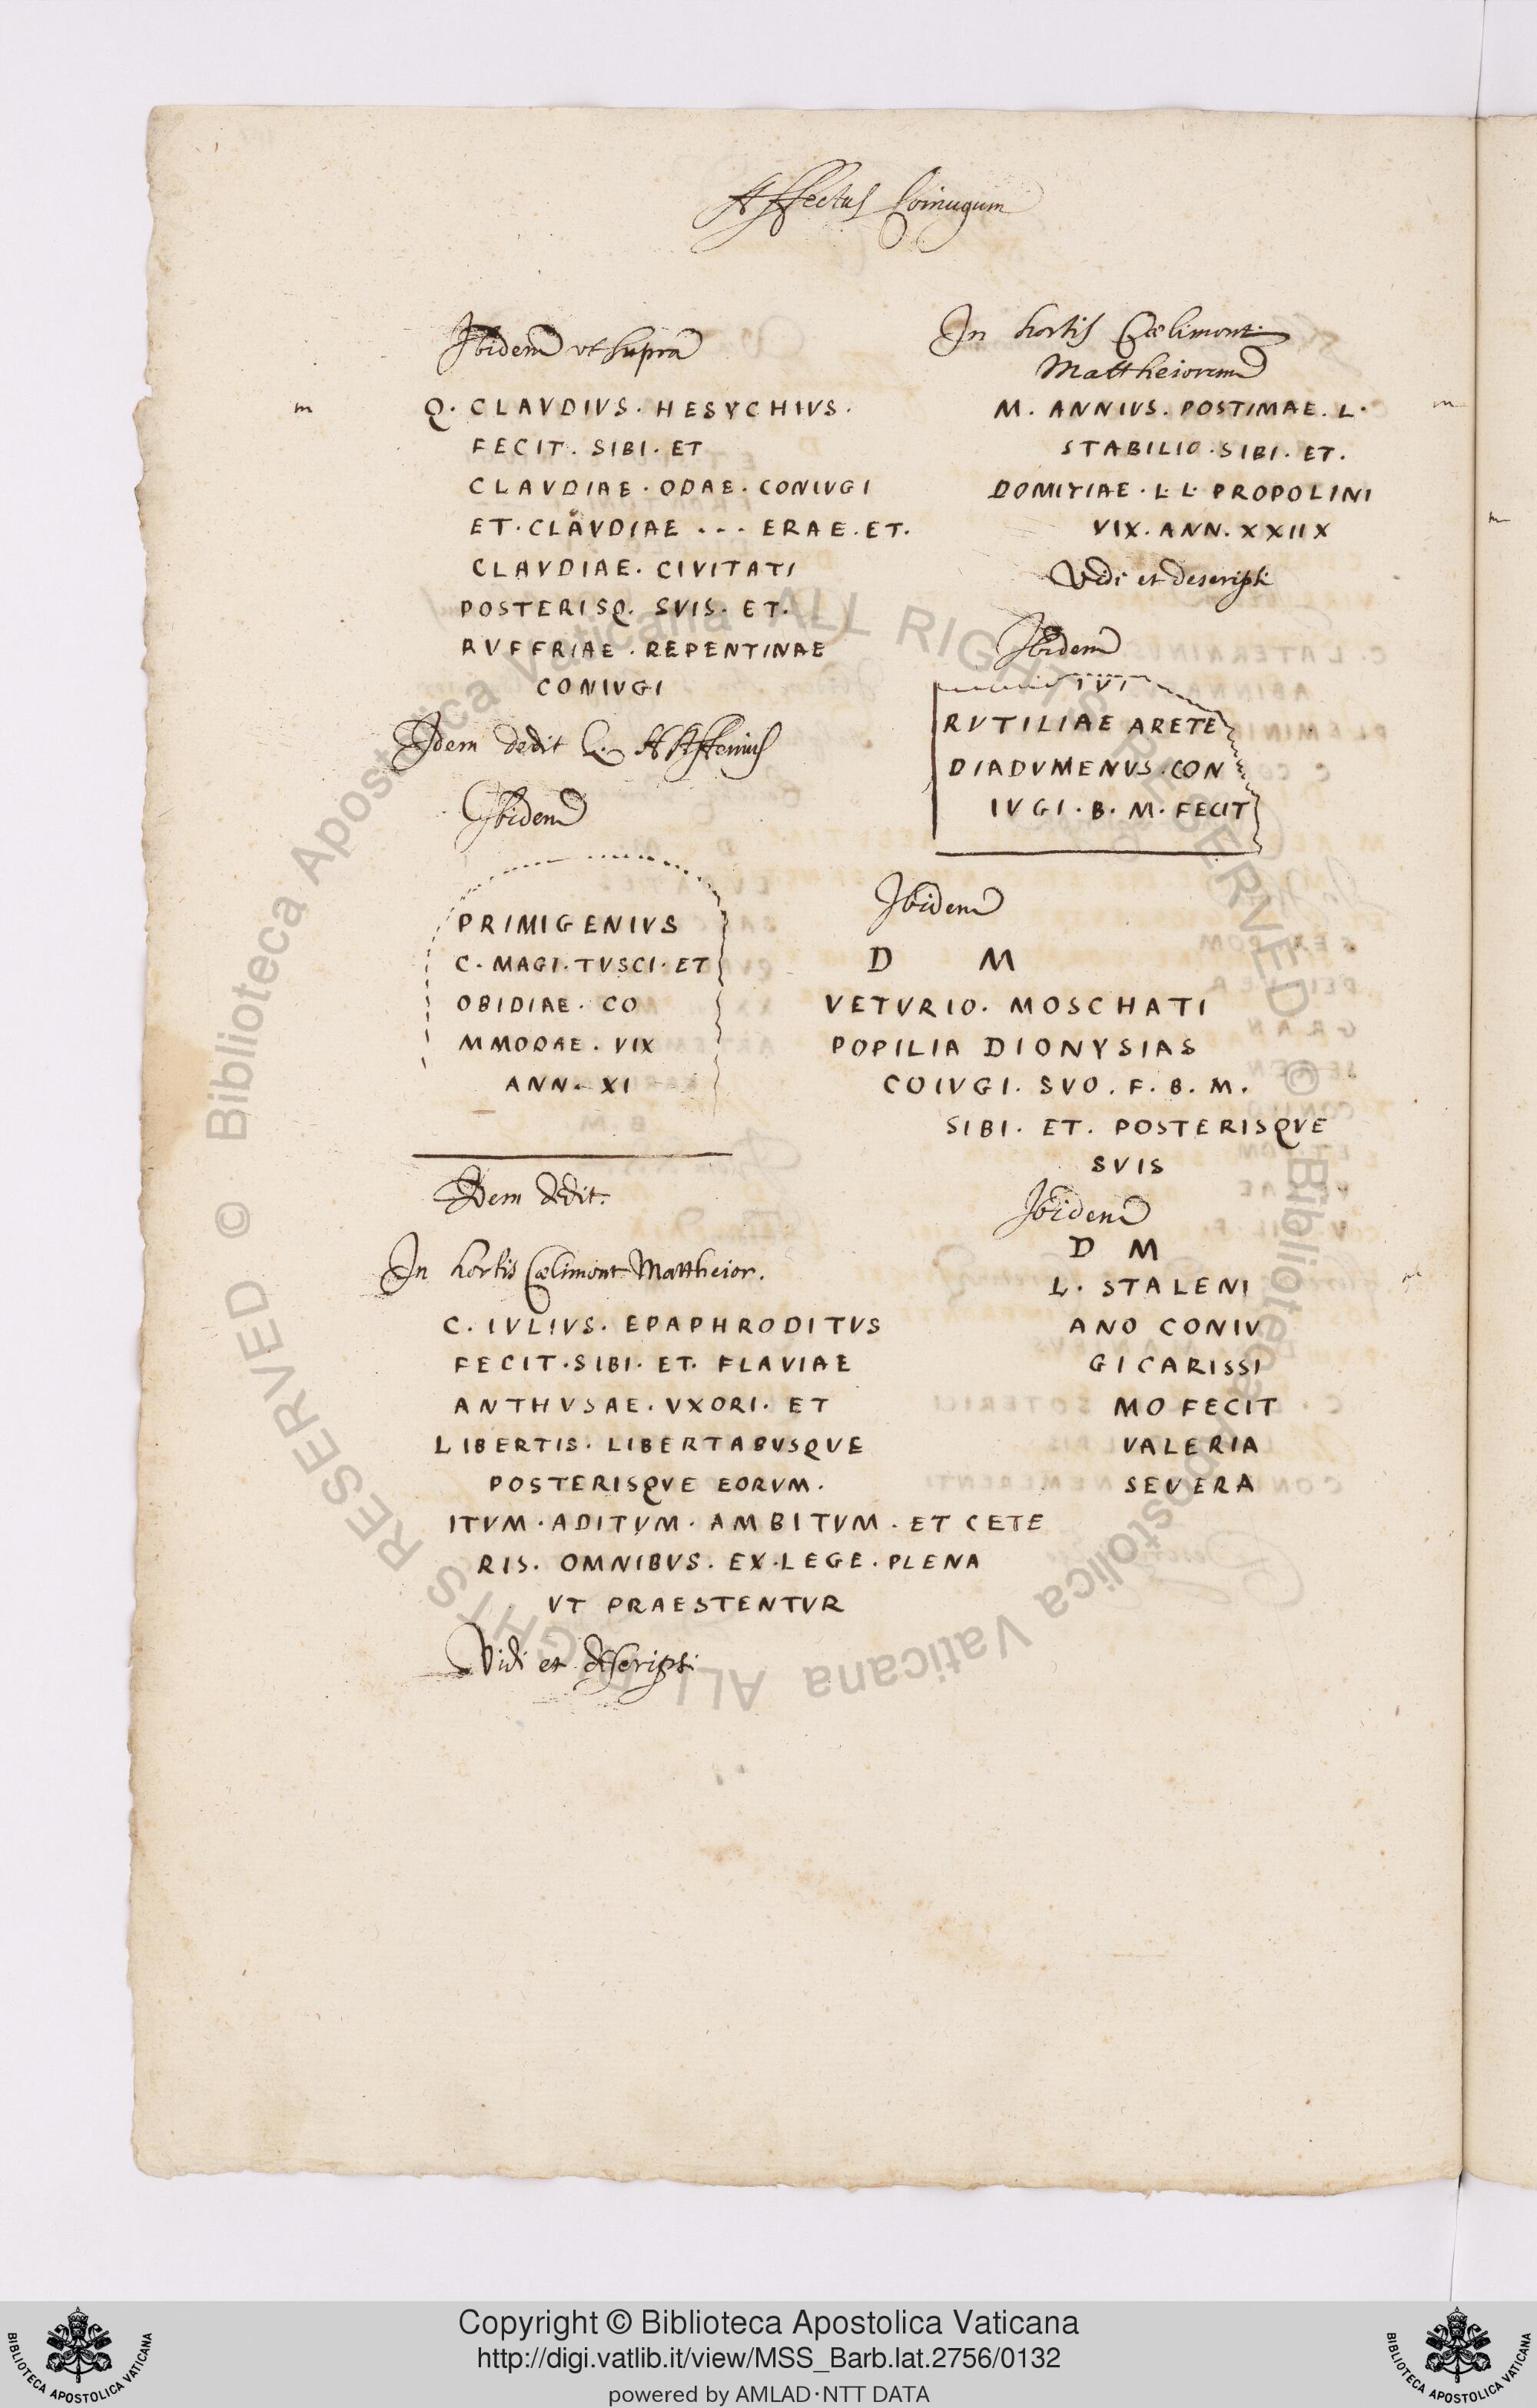 Affectus Coniugum
Ibidem ut supra
m
Q. CLAVDIVS. HESYCHIVS.
FECIT. SIBI. ET
CLAVDIAE. ODAE. CONIVGI
ET. CLAVDIAE ... ERAE. ET.
CLAVDIAE. CIVITATI
POSTERISQ. SVIS. ET.
RVFFRIAE. REPENTINAE
CONIVGI
Idem dedit
Ibidem
PRIMIGENIVS
C. MAGI. TVSCI. ET
OBIDIAE. CO
MMODAE. VIX
ANN. XI
Idem dedit.
In hortis Cælimont. Mattheior.
C. IVLIVS. EPAPHRODITVS
FECIT. SIBI. ET. FLAVIAE
ANTHVSAE. VXORI. ET
LIBERTIS. LIBERTABVSQVE
POSTERISQVE EORVM.
ITVM. ADITVM. AMBITVM. ET CETE
RIS. OMNIBVS. EX. LEGE. PLENA
VT PRAESTENTVR
Vidi et descripsi
In hortis Cælimont.
Mattheiorum
M. ANNIVS. POSTIMAE. L.
m
STABILIO. SIBI. ET.
DOMITIAE. L. L. PROPOLINI
VIX. ANN. XXIIX
m
Vidi et descripsi
Ibidem
TVT
RVTILIAE ARETE
DIADVMENVS. CON
IVGI. B. M. FECIT
Ibidem
D M
VETVRIO. MOSCHATI
POPILIA DIONYSIAS
COIVGI. SVO. F. B. M.
SIBI. ET. POSTERISQVE
SVIS
Ibidem
D M
L. STALENI
ANO CONIV
GI CARISSI
MO FECIT
VALERIA
SEVERA
© Biblioteca Apostolica Vaticana ALL RIGHTS RESERVED
© Biblioteca Apostolica Vaticana ALL RIGHTS RESERVED
Copyright © Biblioteca Apostolica Vaticana
http://digi.vatlib.it/view/MSS_Barb.lat.2756/0132
powered by AMLAD·NTT DATA
BIBLIOTECA APOSTOLICA VATICANA
BIBLIOTECA APOSTOLICA VATICANA